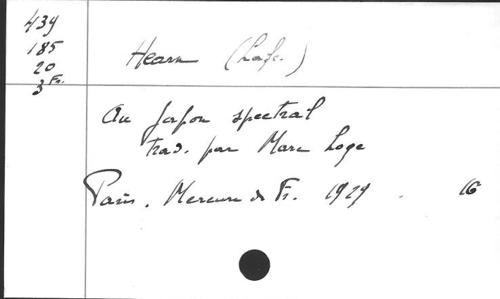 439
185
20
3 Fr.
Hearn (Lafc.)
Au Japon spectral
trad. par Marc Loge
Paris. Mercure de Fr. 1929. 16